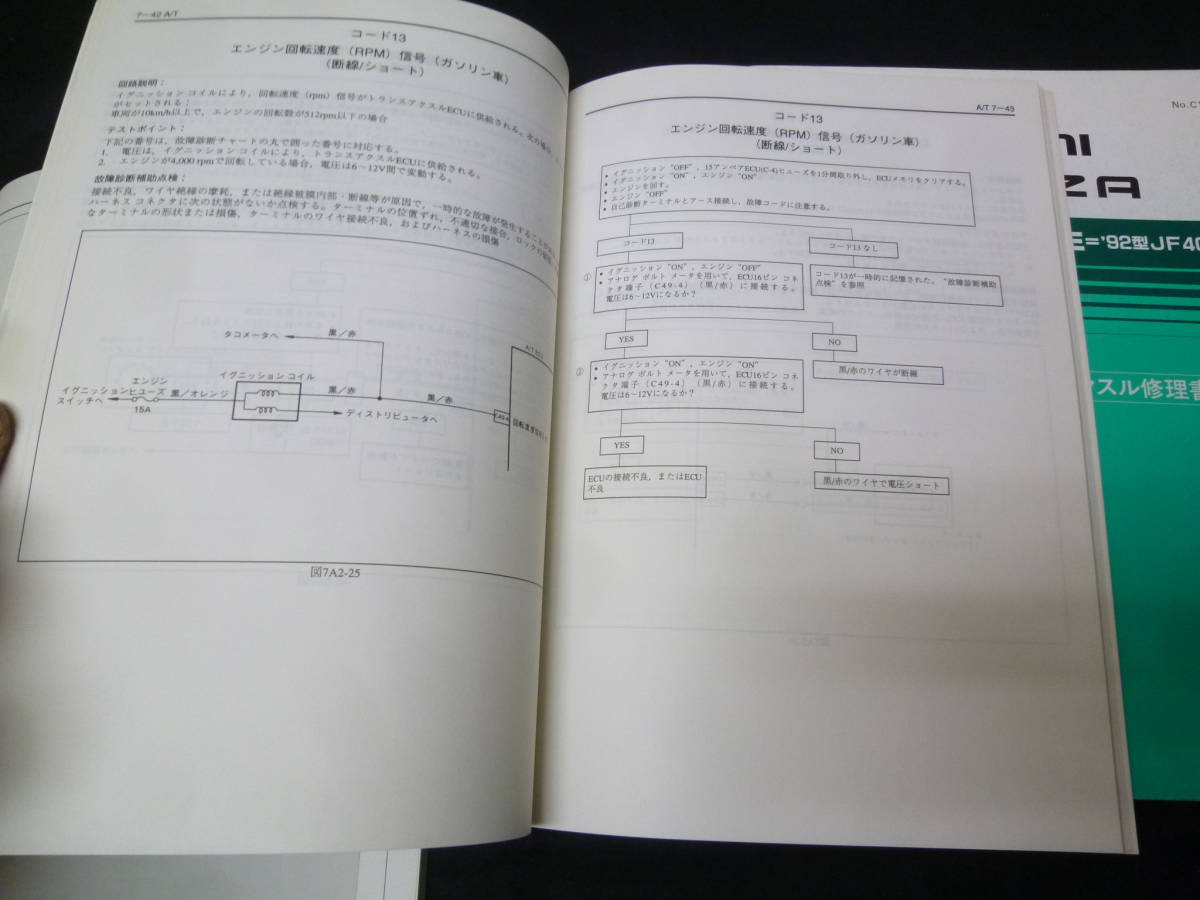 7－42 A/T
コード13
エンジン回転速度（RPM）信号（ガソリン車）
（断線/ショート）
回路説明：
イグニッション コイルにより，回転速度（rpm）信号がトランスアクスルECUに供給される。次の場合，
がセットされる：
車両が10km/h以上で，エンジンの回転数が512rpm以下の場合
テストポイント：
下記の番号は，故障診断チャートの丸で囲った番号に対応する。
1. 電圧は，イグニッション コイルにより，トランスアクスルECUに供給される。
2. エンジンが4,000 rpmで回転している場合，電圧は6～12V間で変動する。
故障診断補助点検：
接続不良，ワイヤ絶縁の摩耗，または絶縁被膜内部・断線等が原因で，一時的な故障が発生することが
ハーネス コネクタに次の状態がないか点検する。ターミナルの位置ずれ，不適切な接合，ロックの破損，
なターミナルの形状または損傷，ターミナルのワイヤ接続不良，およびハーネスの損傷
タコメータへ
黒／赤
A/T
エンジン
イグニッションヒューズ
スイッチへ
15A
黒／オレンジ
イグニッション コイル
黒／赤
黒／赤
ディストリビュータへ
C49-4
回転速度信号
図7A2-25
A/T 7－43
コード13
エンジン回転速度（RPM）信号（ガソリン車）
（断線/ショート）
• イグニッション “OFF”，15アンペアECU(C-4)ヒューズを1分間取り外し，ECUメモリをクリアする。
• イグニッション “ON”，エンジン “ON”
• エンジンを回す。
• エンジン “OFF”
• 自己診断ターミナルとアース接続し，故障コードに注意する。
コード13
コード13 なし
①
• イグニッション “ON”，エンジン “OFF”
• アナログ ボルト メータを用いて，ECU16ピン コネ
クタ端子（C49-4）（黒/赤）に接続する。
電圧は6～12Vになるか？
コード13が一時的に記憶された。“故障診断補助
点検” を参照
YES
NO
②
• イグニッション “ON”，エンジン “ON”
• アナログ ボルト メータを用いて，ECU16ピン コネ
クタ端子（C49-4）（黒/赤）に接続する。
電圧は6～12Vになるか？
黒/赤のワイヤが断線
YES
NO
ECUの接続不良，またはECU
不良
黒/赤のワイヤで電圧ショート
No.C
ZA
E='92型JF40
スル修理書